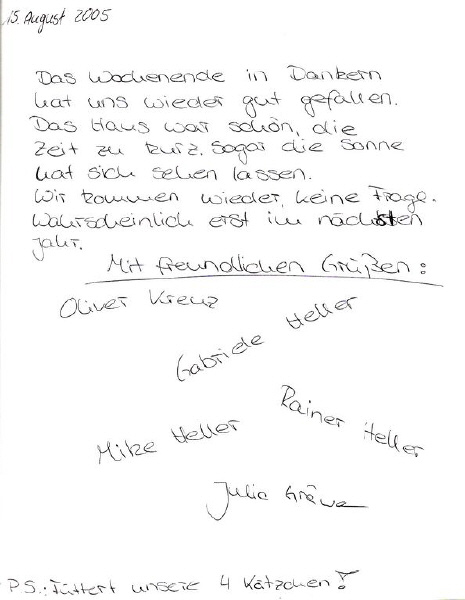 15. August 2005
Das Wochenende in Dankern
hat uns wieder gut gefallen.
Das Haus war schön, die
Zeit zu kurz. Sogar die Sonne
hat sich sehen lassen.
Wir kommen wieder, keine Frage.
Wahrscheinlich erst im nächsten
Jahr.
Mit freundlichen Grüßen:
Oliver Kreuz
Gabriele Heller
Rainer Heller
Mike Heller
Julia
P.S.: Füttert unsere 4 Kätzchen!